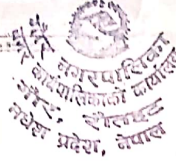 नगरपालिका
कार्यपालिकाको कार्यालय
रौतहट
मधेश प्रदेश, नेपाल